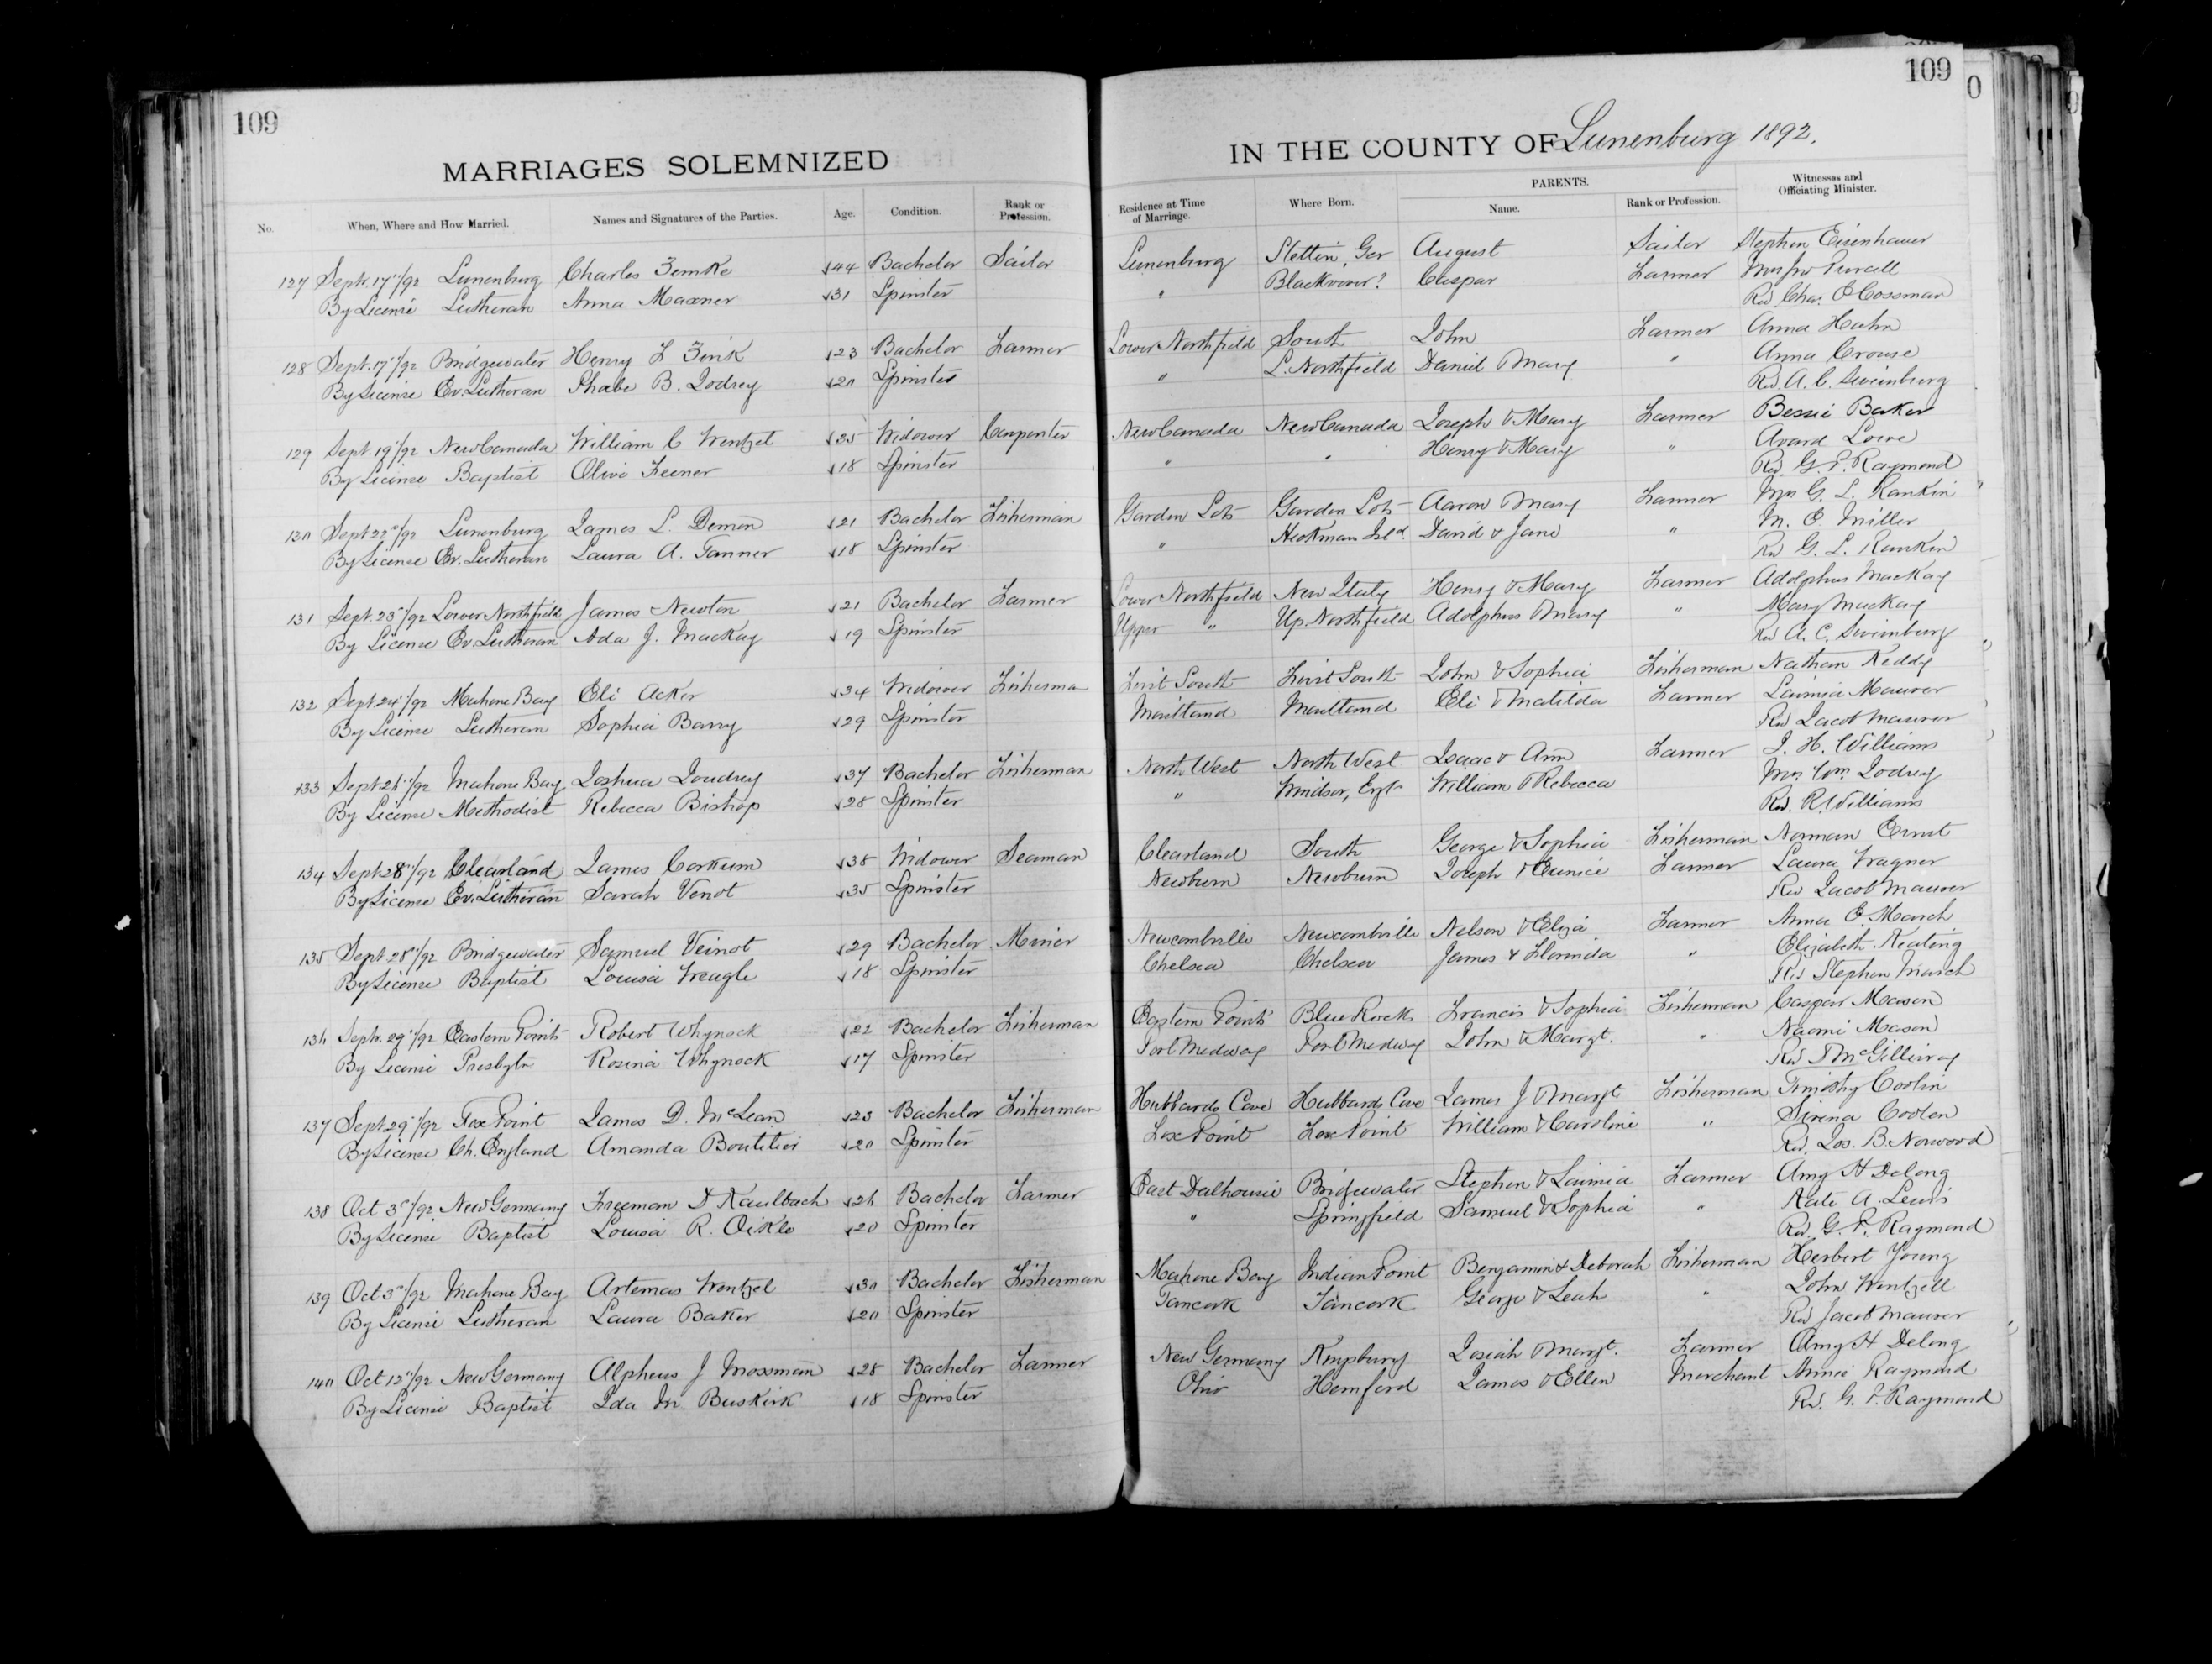 109
109
0
MARRIAGES SOLEMNIZED
IN THE COUNTY OF Lunenburg 1892.
No. When, Where and How Married. Names and Signatures of the Parties. Age. Condition. Rank or Profession. Residence at Time of Marriage. Where Born. PARENTS. Name. Rank or Profession. Witnesses and Officiating Minister.
127 Sept. 17"/92 Lunenburg Charles Zemke 44 Bachelor Sailor Lunenburg Stettin, Ger August Sailor Stephen Eisenhauer
By License Lutheran Anna Maxner 31 Spinster " Blackrover? Caspar Farmer Mrs Jno Purcell
Rev. Chas. E Cossman
128 Sept. 17"/92 Bridgewater Henry L Zink 23 Bachelor Farmer Lower Northfield South John Farmer Anna Hahn
By License Ev. Lutheran Phabe B. Lodrey 20 Spinster " L. Northfield Daniel & Mary " Anna Crouse
Rev. A. C. Swinburg
129 Sept. 19"/92 New Canada William C Wentzel 35 Widower Carpenter New Canada New Canada Joseph & Mary Farmer Bessie Baker
By License Baptist Olivi Feener 18 Spinster " " Henry & Mary " Avard Lowe
Rev. G. P. Raymond
130 Sept 22"/92 Lunenburg James L. Demon 21 Bachelor Fisherman Garden Lots Garden Lots Aaron & Mary Farmer Mrs G. L. Rankin
By License Ev. Lutheran Laura A. Tanner 18 Spinster " Heckman Isld. David & Jane " M. E. Miller
Rev G. L. Rankin
131 Sept. 23"/92 Lower Northfield James Newton 21 Bachelor Farmer Lower Northfield New Italy Henry & Mary Farmer Adolphus MacKay
By License Ev. Lutheran Ada J. MacKay 19 Spinster Upper " Up. Northfield Adolphus & Mary " Mary MacKay
Rev A. C. Swinburg
132 Sept. 24"/92 Mahone Bay Eli Acker 34 Widower Fisherman First South First South John & Sophia Fisherman Nathan Keddy
By License Lutheran Sophia Barry 29 Spinster Maitland Maitland Eli & Matilda Farmer Lavinia Maurer
Rev Jacob Maurer
133 Sept. 26"/92 Mahone Bay Joshua Loudrey 37 Bachelor Fisherman North West North West Isaac & Ann Farmer J. H. Williams
By License Methodist Rebecca Bishop 28 Spinster " Windsor, Engl William & Rebecca Mrs Wm. Lodrey
Rev. R. Williams
134 Sept 28"/92 Clearland James Corkum 38 Widower Seaman Clearland South George & Sophia Fisherman Norman Ernst
By License Ev. Lutheran Sarah Venot 35 Spinster Newburn Newburn Joseph & Eunice Farmer Laura Wagner
Rev Jacob Maurer
135 Sept 28"/92 Bridgewater Samuel Veinot 29 Bachelor Miner Newcombville Newcombville Nelson & Eliza Farmer Anna E. March
By License Baptist Louisa Weagle 18 Spinster Chelsea Chelsea James & Florinda " Elizabeth Keating
Rev Stephen March
136 Sept. 29"/92 Eastern Points Robert Whynock 22 Bachelor Fisherman Eastern Points Blue Rock Francis & Sophia Fisherman Caspar Mason
By License Presbytn Rosina Whynock 17 Spinster Port Medway Port Medway John & Margt. " Naomi Mason
Rev McGillivray
137 Sept 29"/92 Fox Point James D. McLean 23 Bachelor Fisherman Hubbards Cove Hubbards Cove James J & Margt Fisherman Timothy Coolin
By License Ch. England Amanda Boutilier 20 Spinster Fox Point Fox Point William & Caroline " Sirena Coolen
Rev. Jos. B. Norwood
138 Oct 3"/92 New Germany Freeman D Kaulbach 26 Bachelor Farmer East Dalhousie Bridgewater Stephen & Lavinia Farmer Amy H Delong
By License Baptist Louisa R. Oikle 20 Spinster " Springfield Samuel & Sophia " Kate A. Lewis
Rev. G. P. Raymond
139 Oct 3"/92 Mahone Bay Artemas Wentzel 30 Bachelor Fisherman Mahone Bay Indian Point Benjamin & Deborah Fisherman Herbert Young
By License Lutheran Laura Baker 20 Spinster Tancook Tancook George & Leah " John Wentzell
Rev Jacob Maurer
140 Oct 12"/92 New Germany Alpheus J Mossman 28 Bachelor Farmer New Germany Kingsburg Josiah & Margt. Farmer Amy H Delong
By License Baptist Ida M Buskirk 18 Spinster Ohio Hemford James & Ellen Merchant Annie Raymond
Rev. G. P. Raymond